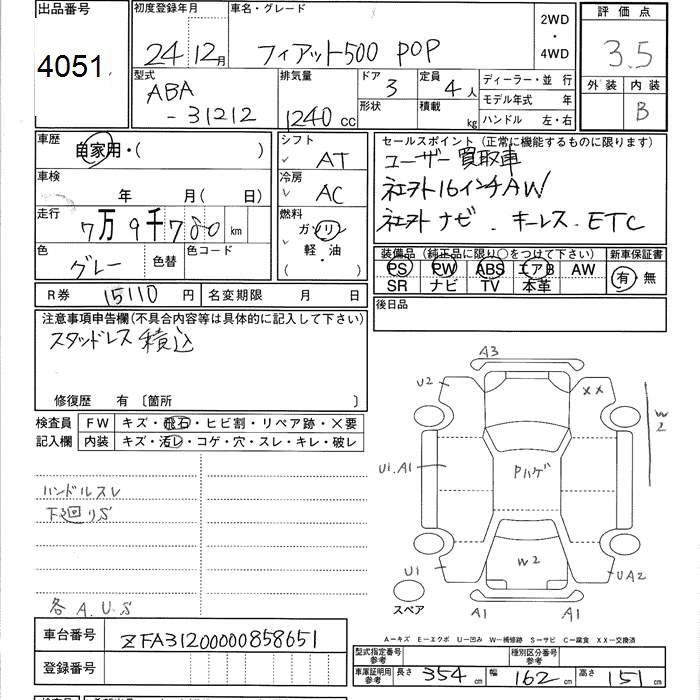 出品番号 初度登録年月 車名・グレード 2WD ・ 4WD 評価点
4051 24年12月 フィアット500 POP 3.5
型式 排気量 ドア 定員 ディーラー・並 行 外装 内装
ABA -31212 1240 cc 3 4人 モデル年式 年 B
形状 積載 kg ハンドル 左・右
車歴 自家用・( ) シフト AT セールスポイント (正常に機能するものに限ります)
車検 年 月( 日) 冷房 AC ユーザー買取車
走行 7万9千700km 燃料 ガソリン 軽・油 ( ) 社外16インチAW
色 グレー 色替 色コード 社外ナビ.キーレス.ETC
装備品 (純正品に限り○をつけて下さい) 新車保証書
PS PW ABS エアB AW 有 無
SR ナビ TV 本革
R券 15110 円 名変期限 月 日 後日品
注意事項申告欄(不具合内容等は具体的に記入して下さい)
スタッドレス積込
修復歴 有 〔箇所 〕
検査員 FW キズ・飛石・ヒビ割・リペア跡・×要
記入欄 内装 キズ・汚レ・コゲ・穴・スレ・キレ・破レ
ハンドルスレ
下廻りS
各 A.U.S
A3
U2 XX
W2
U1.A1 Pハゲ
W2
U1 UA2
スペア A1 A1
A-キズ E-エクボ U-凹み W-補修跡 S-サビ C-腐食 XX-交換済
車台番号 ZFA31200000858651
登録番号
型式指定番号 参考 種別区分番号 参考
車庫証明用 参考 長さ 354cm 幅 162cm 高さ 151cm